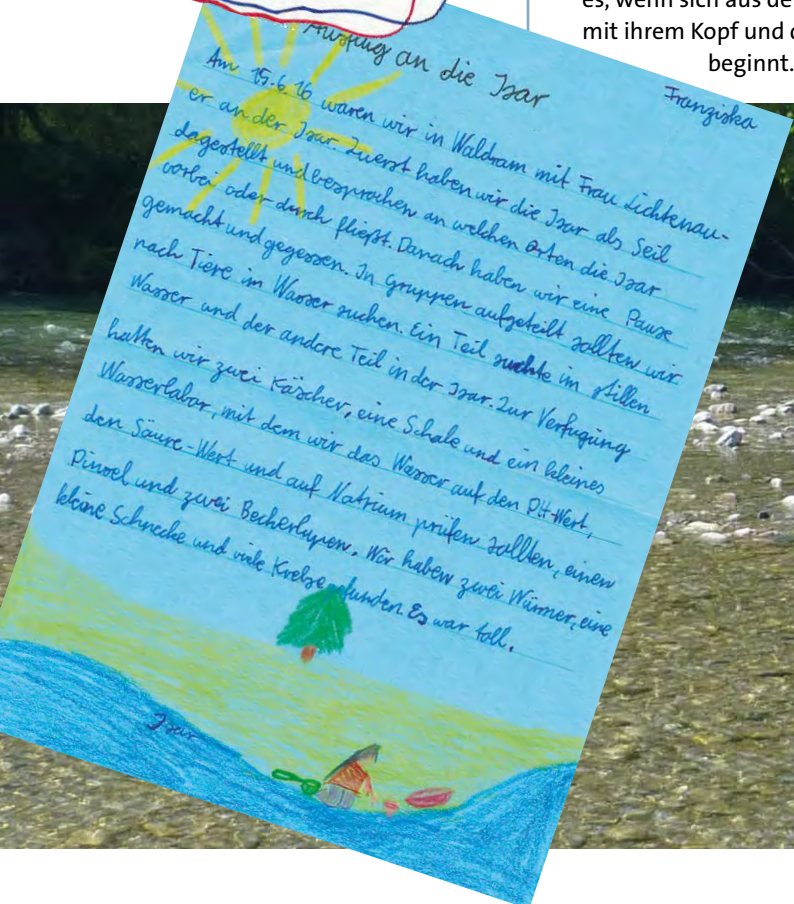 es, wenn sich aus de
mit ihrem Kopf und d
beginnt.
Ausflug an die Isar
Franziska
Am 15.6.16 waren wir in Waldram mit Frau Lichtenau-
er an der Isar. Zuerst haben wir die Isar als Seil
dagestellt und besprochen an welchen Orten die Isar
vorbei oder durch fließt. Danach haben wir eine Pause
gemacht und gegessen. In gruppen aufgeteilt sollten wir
nach Tiere im Wasser suchen. Ein Teil suchte im stillen
Wasser und der andere Teil in der Isar. Zur Verfugung
hatten wir zwei Käscher, eine Schale und ein kleines
Wasserlabor, mit dem wir das Wasser auf den PH-Wert,
den Säure-Wert und auf Natrium prüfen sollten, einen
Pinsel und zwei Becherlupen. Wir haben zwei Würmer, eine
kleine Schnecke und viele Krebse gefunden. Es war toll.
Isar